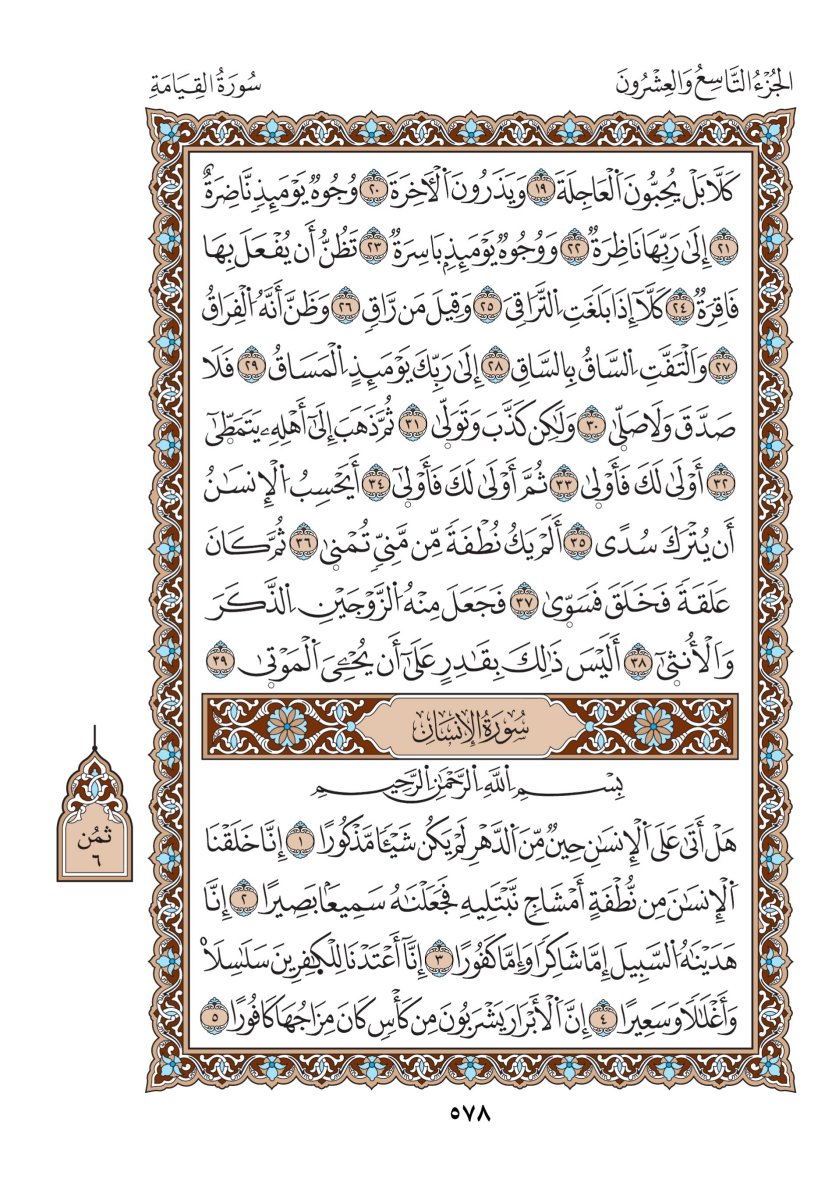 الجُزْءُ التَّاسِعُ وَالعِشْرُونَ
سُورَةُ القِيَامَةِ
كَلَّا بَلْ يُحِبُّونَ اَ۬لْعَاجِلَةَ ١٩ وَيَذَرُونَ اَ۬لْأٓخِرَةَ ٢٠ وُجُوهٌ يَوْمَئِذٖ نَّاضِرَةٌ
٢١ إِلَىٰ رَبِّهَا نَاظِرَةٌ ٢٢ وَوُجُوهٌ يَوْمَئِذِۢ بَاسِرَةٌ ٢٣ تَظُنُّ أَن يُفْعَلَ بِهَا
فَاقِرَةٌ ٢٤ كَلَّآ إِذَا بَلَغَتِ اِ۬لتَّرَاقِيَ ٢٥ وَقِيلَ مَن رَّاقٖ ٢٦ وَظَنَّ أَنَّهُ اُ۬لْفِرَاقُ
٢٧ وَالْتَفَّتِ اِ۬لسَّاقُ بِالسَّاقِ ٢٨ إِلَىٰ رَبِّكَ يَوْمَئِذٍ اِ۬لْمَسَاقُ ٢٩ فَلَا
صَدَّقَ وَلَا صَلّ۪ىٰ ٣٠ وَلَٰكِن كَذَّبَ وَتَوَلّ۪ىٰ ٣١ ثُمَّ ذَهَبَ إِلَىٰٓ أَهْلِهِۦ يَتَمَطّ۪ىٰٓ
٣٢ أَوْلَىٰ لَكَ فَأَوْل۪ىٰ ٣٣ ثُمَّ أَوْلَىٰ لَكَ فَأَوْل۪ىٰٓ ٣٤ أَيَحْسِبُ اُ۬لْإِنسَٰنُ
أَن يُتْرَكَ سُدًى ٣٥ أَلَمْ يَكُ نُطْفَةً مِّن مَّنِيّٖ تُمْن۪ىٰ ٣٦ ثُمَّ كَانَ
عَلَقَةً فَخَلَقَ فَسَوّ۪ىٰ ٣٧ فَجَعَلَ مِنْهُ اُ۬لزَّوْجَيْنِ اِ۬لذَّكَرَ
وَالْأُنث۪ىٰٓ ٣٨ أَلَيْسَ ذَٰلِكَ بِقَٰدِرٍ عَلَىٰٓ أَن يُحْـِۧيَ اَ۬لْمَوْت۪ىٰ ٣٩
سُورَةُ الإِنسَانِ
بِسْمِ اِ۬للَّهِ اِ۬لرَّحْمَٰنِ اِ۬لرَّحِيمِ
هَلْ أَتَىٰ عَلَى اَ۬لْإِنسَٰنِ حِينٌ مِّنَ اَ۬لدَّهْرِ لَمْ يَكُن شَيْـٔٗا مَّذْكُورًا ١ إِنَّا خَلَقْنَا
اَ۬لْإِنسَٰنَ مِن نُّطْفَةٍ أَمْشَاجٖ نَّبْتَلِيهِ فَجَعَلْنَٰهُ سَمِيعَۢا بَصِيرًا ٢ إِنَّا
هَدَيْنَٰهُ اُ۬لسَّبِيلَ إِمَّا شَاكِرٗا وَإِمَّا كَفُورًا ٣ إِنَّآ أَعْتَدْنَا لِلْكٰ۪فِرِينَ سَلَٰسِلَا۟
وَأَغْلَٰلٗا وَسَعِيرًا ٤ إِنَّ اَ۬لْأَبْرَارَ يَشْرَبُونَ مِن كَأْسٖ كَانَ مِزَاجُهَا كَافُورًا ٥
ثُمُن
٦
٥٧٨